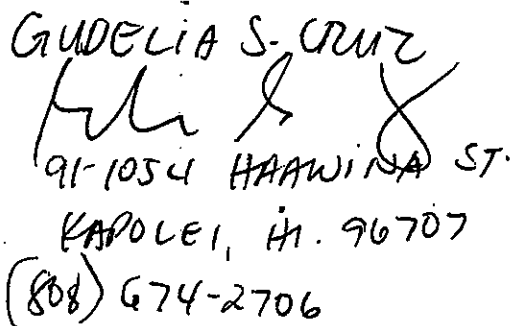 GUDELIA S. CRUZ
91-1054 HAAWINA ST.
KAPOLEI, HI. 96707
(808) 674-2706